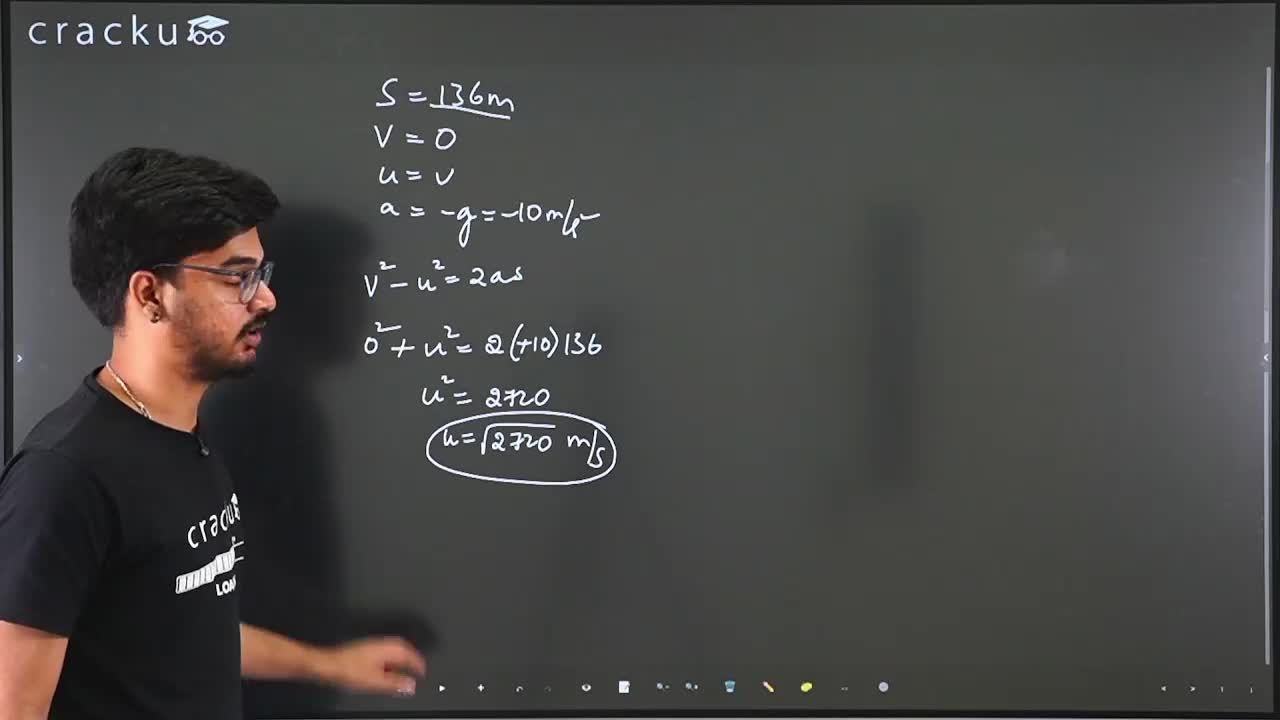 cracku
S = 136m
V = 0
u = v
a = -g = -10 m/s²
V² - u² = 2as
0² + u² = 2(+10)136
u² = 2720
u = √2720 m/s
cracku
LOA